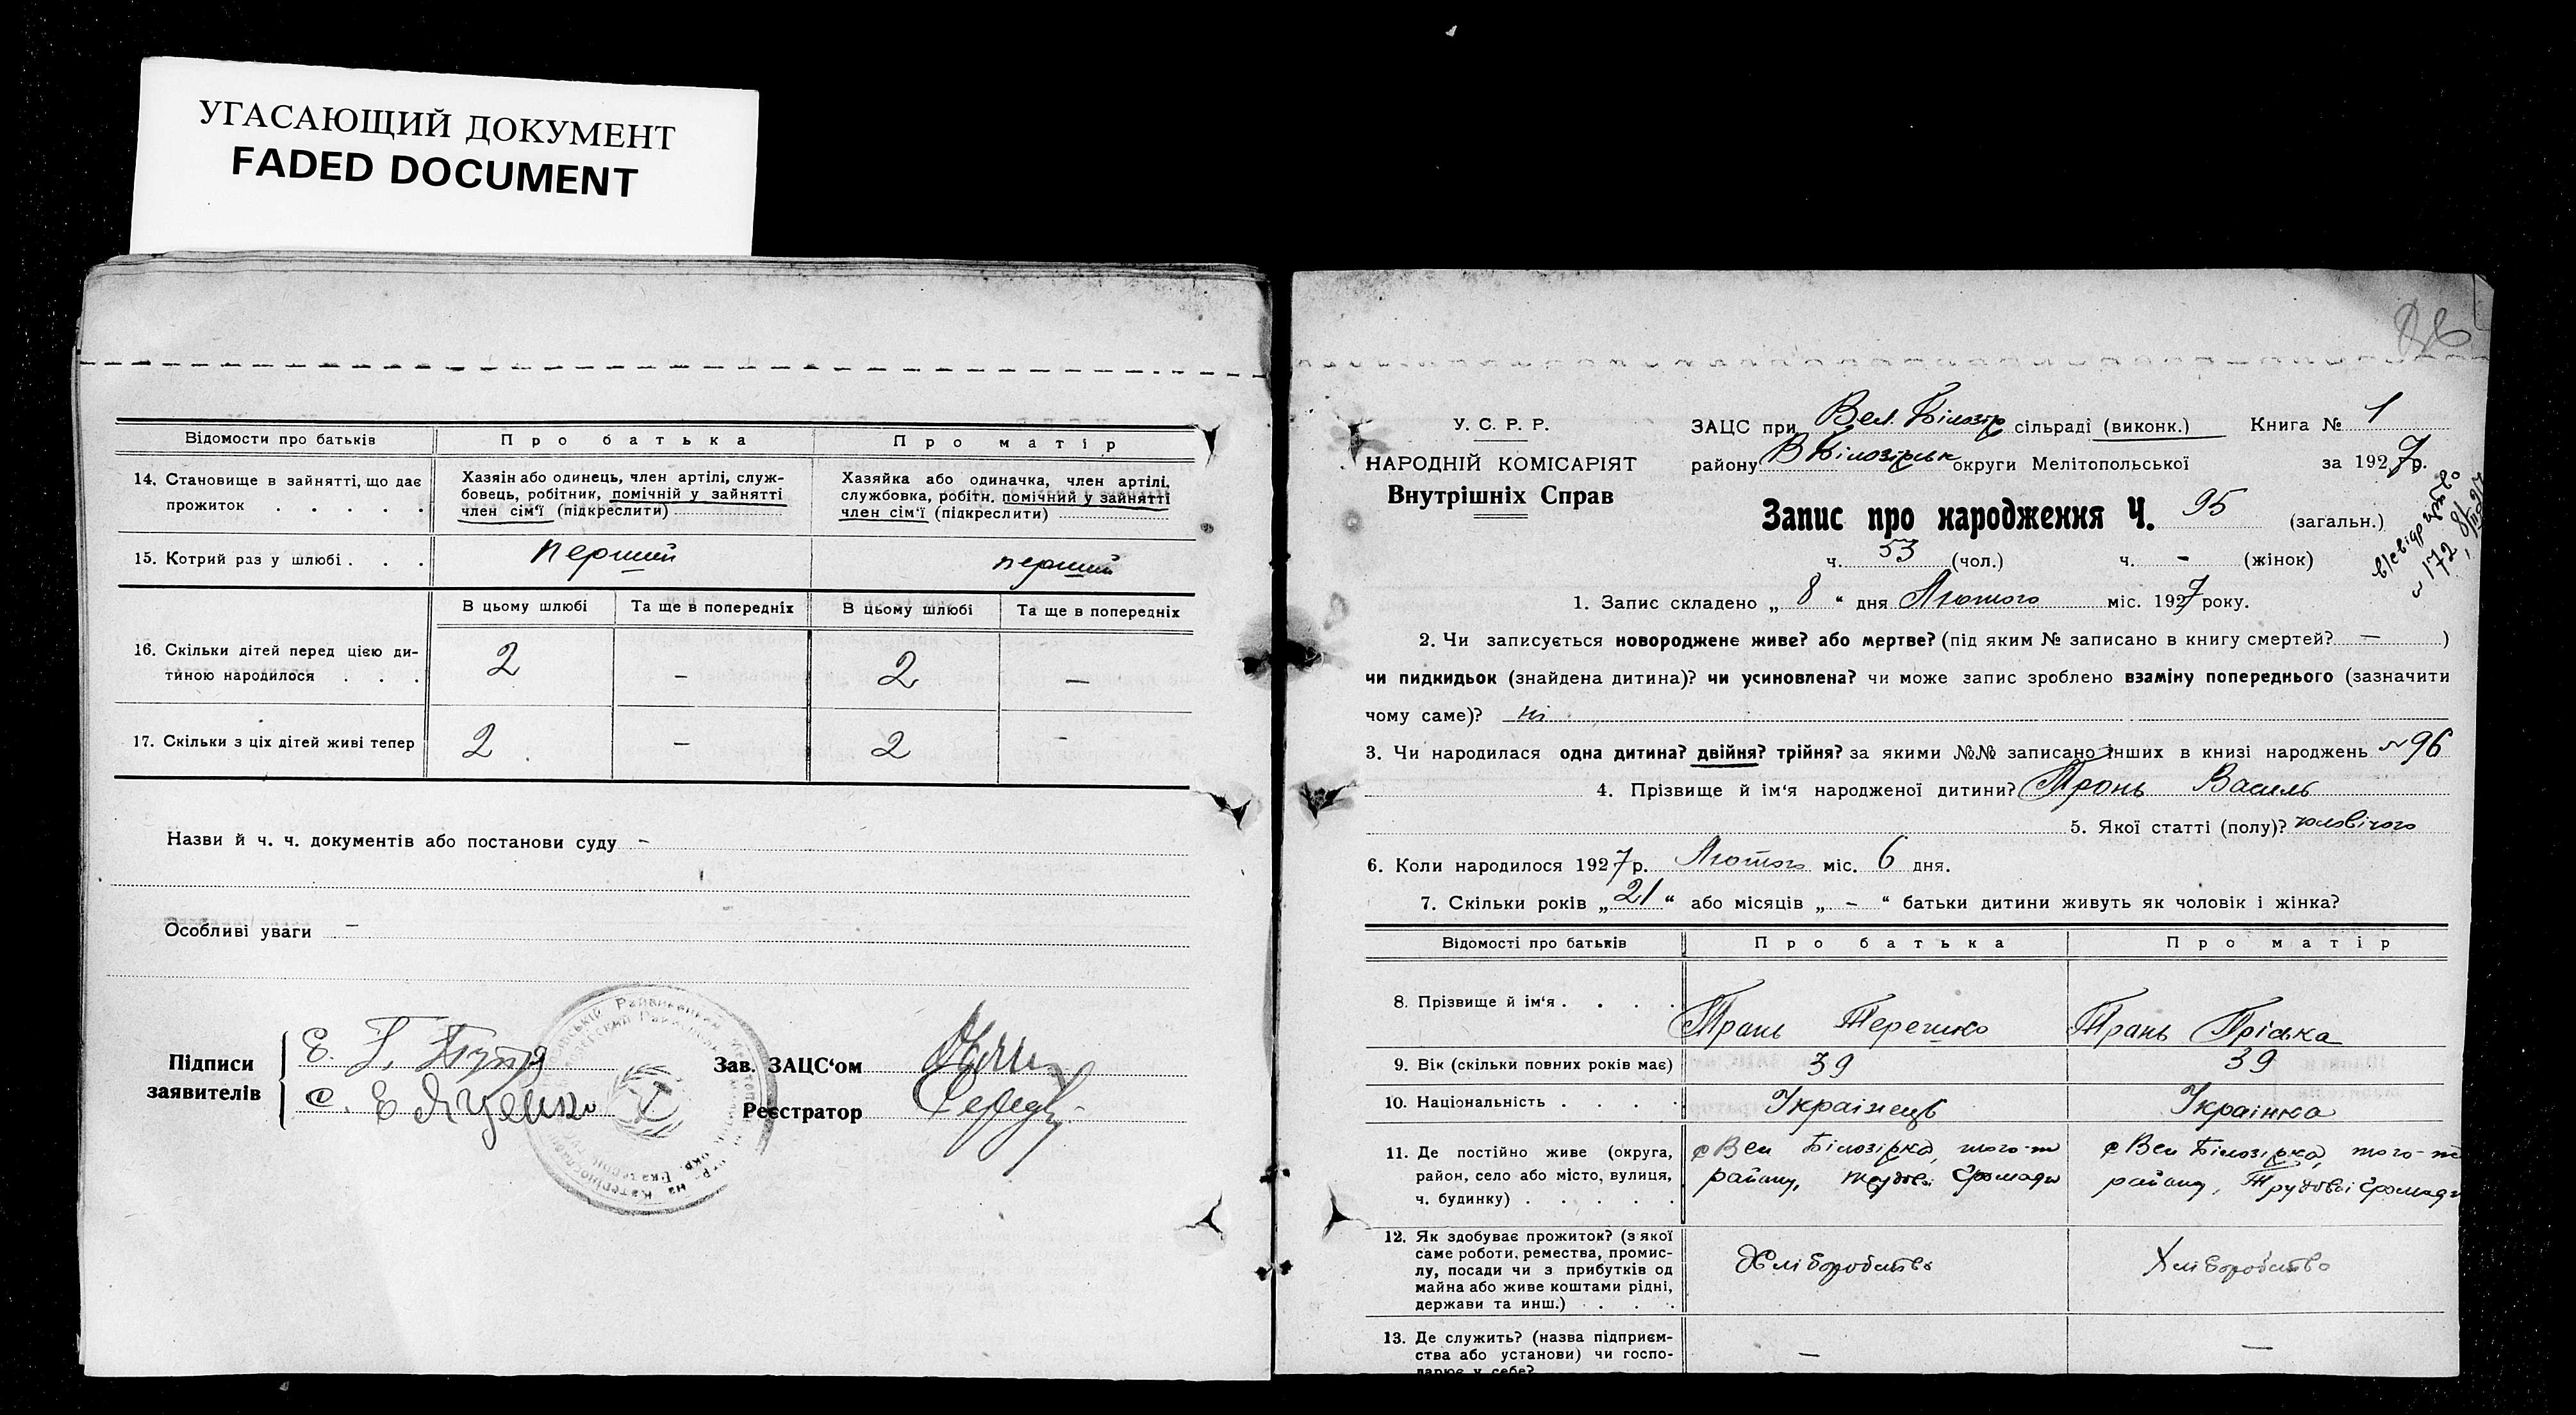 УГАСАЮЩИЙ ДОКУМЕНТ
FADED DOCUMENT
Відомости про батьків
Про батька
Про матір
14. Становище в зайнятті, що дає
прожиток . . . . .
Хазяін або одинець, член артілі, служ-
бовець, робітник, помічній у зайнятті
член сім'ї (підкреслити)
Хазяйка або одиначка, член артілі,
службовка, робітн. помічний у зайнятті
член сім'ї (підкреслити)
15. Котрий раз у шлюбі . . .
перший
перший
В цьому шлюбі
Та ще в попередніх
В цьому шлюбі
Та ще в попередніх
16. Скільки дітей перед цією ди-
тиною народилося . . .
2 - 2 -
17. Скільки з ціх дітей живі тепер
2 - 2 -
Назви й ч. ч. документів або постанови суду -
Особливі уваги -
Підписи
заявителів
Зав. ЗАЦС'ом
Реєстратор
У. С. Р. Р.
НАРОДНІЙ КОМІСАРІЯТ
Внутрішніх Справ
ЗАЦС при Вел. Білозір сільраді (виконк.) Книга № 1
району В Білозірськ округи Мелітопольської за 1927 р.
Запис про народження Ч. 95 (загальн.)
ч. 53 (чол.) ч. - (жінок)
1. Запис складено „ 8 “ дня Лютого міс. 1927 року.
2. Чи записується новороджене живе? або мертве? (під яким № записано в книгу смертей? — )
чи пидкидьок (знайдена дитина)? чи усиновлена? чи може запис зроблено взаміну попереднього (зазначити
чому саме)? ні
3. Чи народилася одна дитина? двійня? трійня? за якими №№ записано інших в книзі народжень №96
4. Прізвище й ім'я народженої дитини? Тронь Василь
5. Якої статті (полу)? чоловічого
6. Коли народилося 1927 р. Лютого міс. 6 дня.
7. Скільки років „ 21 “ або місяців „ - “ батьки дитини живуть як чоловік і жінка?
Відомості про батьків
Про батька
Про матір
8. Прізвище й ім'я . . . .
Трань Терешко
Трань Пріська
9. Вік (скільки повних років має)
39
39
10. Національність . . . .
Украінець
Украінка
11. Де постійно живе (округа,
район, село або місто, вулиця,
ч. будинку) . . . . .
с Вел Білозірка, того-ж
району, трудові громади
с Вел Білозірка, того-ж
району, Трудові громади
12. Як здобуває прожиток? (з якої
саме роботи, ремества, промис-
лу, посади чи з прибутків од
майна або живе коштами рідні,
держави та инш.) . . .
Хліборобство
Хліборобство
13. Де служить? (назва підприєм-
ства або установи) чи госпо-
дарює у себе?
—
—